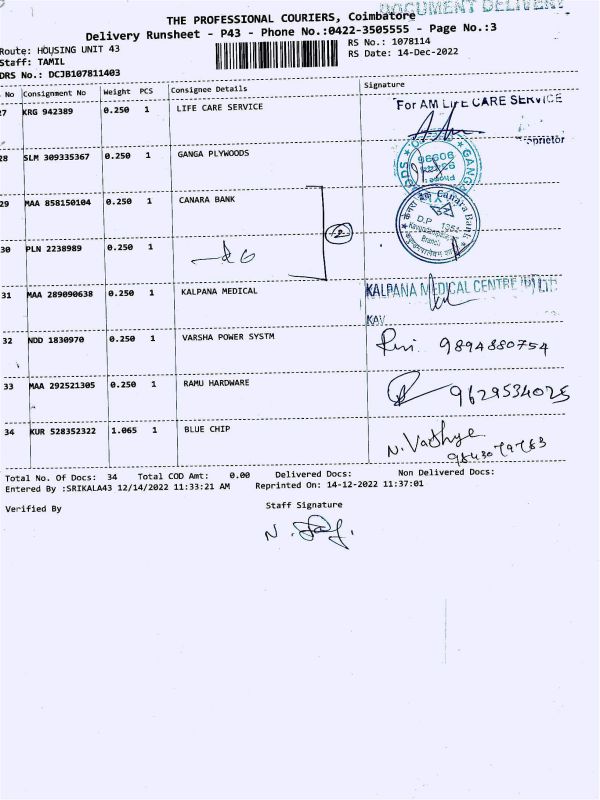 DOCUMENT DELIVERY
THE PROFESSIONAL COURIERS, Coimbatore
Delivery Runsheet - P43 - Phone No.:0422-3505555 - Page No.:3
Route: HOUSING UNIT 43 RS No.: 1078114
Staff: TAMIL RS Date: 14-Dec-2022
DRS No.: DCJB107811403
No Consignment No Weight PCS Consignee Details Signature
27 KRG 942389 0.250 1 LIFE CARE SERVICE For AM LIFE CARE SERVICE
28 SLM 309335367 0.250 1 GANGA PLYWOODS
29 MAA 858150104 0.250 1 CANARA BANK Canara Bank
30 PLN 2238989 0.250 1
31 MAA 289090638 0.250 1 KALPANA MEDICAL KALPANA MEDICAL CENTRE (P) LTD
KAV
32 NDD 1830970 0.250 1 VARSHA POWER SYSTM 9894880754
33 MAA 292521305 0.250 1 RAMU HARDWARE 9629534025
34 KUR 528352322 1.065 1 BLUE CHIP
Total No. Of Docs: 34 Total COD Amt: 0.00 Delivered Docs: Non Delivered Docs:
Entered By :SRIKALA43 12/14/2022 11:33:21 AM Reprinted On: 14-12-2022 11:37:01
Verified By Staff Signature